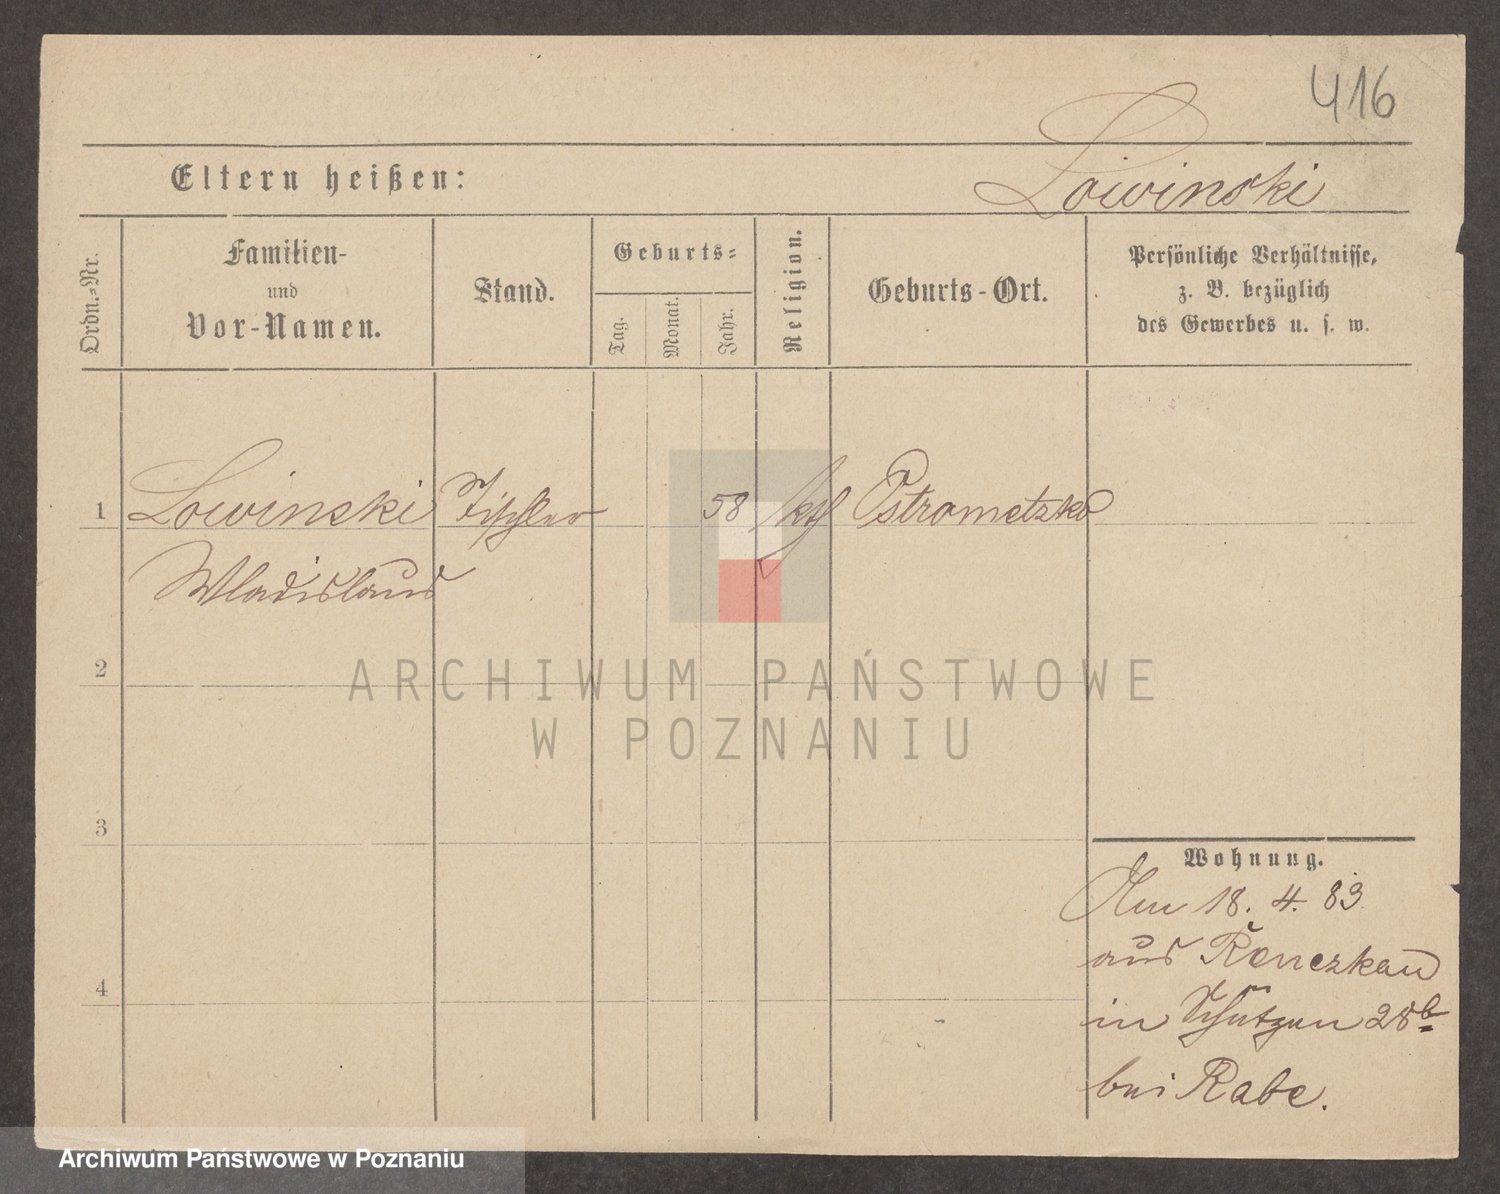 416
Eltern heißen:
Lowinski
Ordn.-Nr.
Familien-
und
Vor-Namen.
Stand.
Geburts-
Tag.
Monat.
Jahr.
Religion.
Geburts-Ort.
Persönliche Verhältnisse,
z. B. bezüglich
des Gewerbes u. s. w.
1 Lowinski Tischler 58 kth Ostrometzko
Wladislaus
2
3
4
Wohnung.
Am 18. 4. 83
aus Renczkau
in Schützen 28b
bei Rabe.
ARCHIWUM PAŃSTWOWE
W POZNANIU
Archiwum Państwowe w Poznaniu